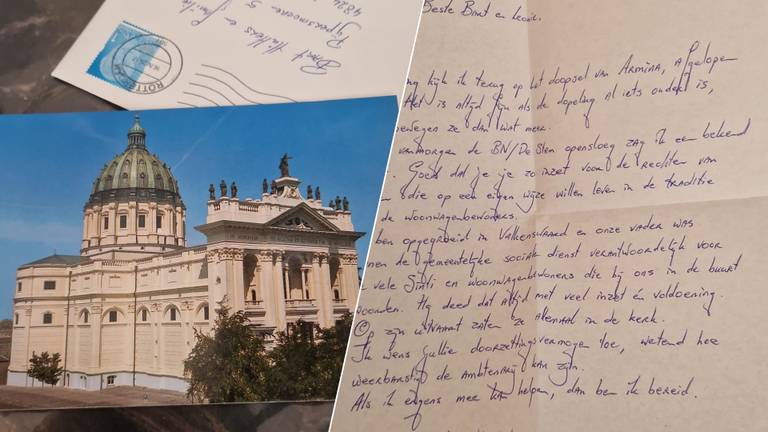 ROTTERDAM
Bart Hallers en familie
4824
Beste Bart en
kijk ik terug op het doopsel van Armina, afgelopen
Het is altijd fijn als de dopeling al iets ouder is,
bewegen ze dan wat meer.
vanmorgen de BN/De Stem opensloeg zag ik een bekend
Goed dat je je zo inzet voor de rechten van
die op een eigen wijze willen leven in de traditie
de woonwagenbewoners.
ben opgegroeid in Valkenswaard en onze vader was
nen de gemeentelijke sociale dienst verantwoordelijk voor
vele Sinti en woonwagenbewoners die bij ons in de buurt
woonden. Hij deed dat altijd met veel inzet én voldoening.
Op zijn uitvaart zaten ze allemaal in de kerk.
Ik wens jullie doorzettingsvermogen toe, wetend hoe
weerbarstig de ambtenarij kan zijn.
Als ik ergens mee kan helpen, dan ben ik bereid.